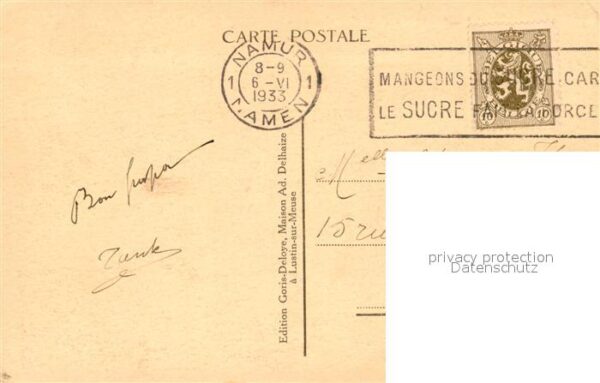 CARTE POSTALE
NAMUR
1 8-9 1
6-VI
1933
NAMEN
MANGEONS DU SUCRE, CAR
LE SUCRE FAIT LA FORCE
10 10
Bon
Edition Goris-Deloye, Maison Ad. Delhaize
à Lustin-sur-Meuse
Melle
15 rue
privacy protection
Datenschutz